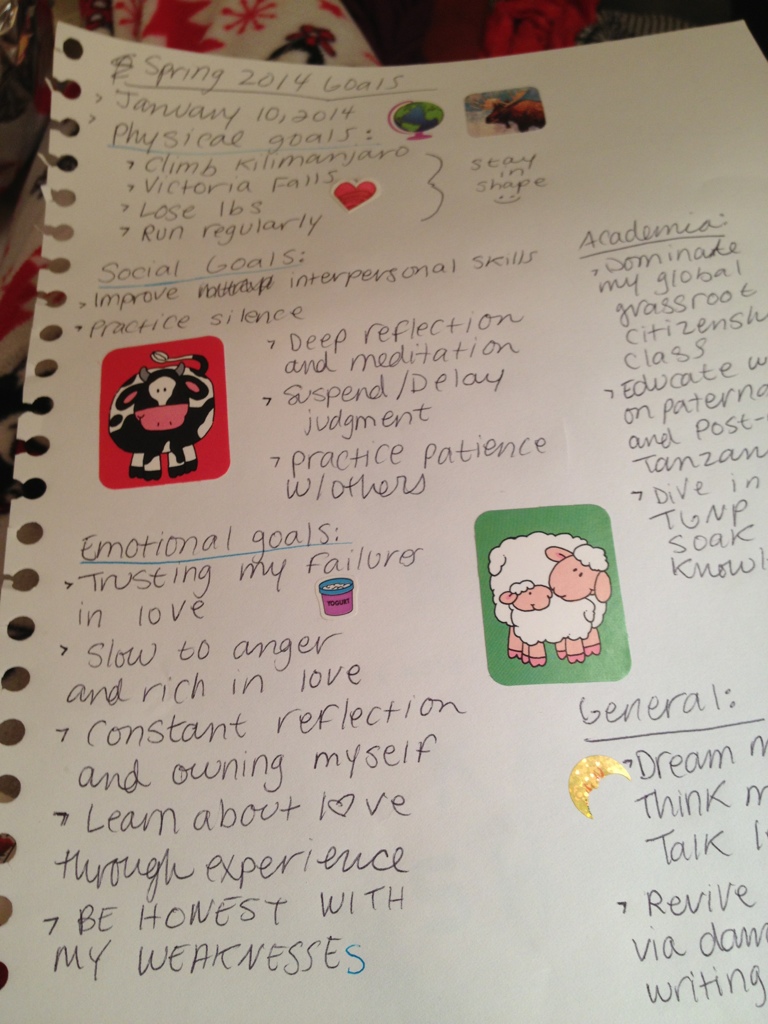 Spring 2014 Goals
January 10, 2014
Physical goals:
Climb Kilimanjaro
Victoria Falls
Lose lbs
Run regularly
stay
in
shape
Social Goals:
Improve interpersonal skills
Practice silence
Deep reflection
and meditation
Suspend/Delay
judgment
Practice patience
w/others
Emotional goals:
Trusting my failures
in love
YOGURT
Slow to anger
and rich in love
Constant reflection
and owning myself
Learn about love
through experience
BE HONEST WITH
MY WEAKNESSES
Academia:
Dominate
my global
grassroot
citizensh
class
Educate w
on paterna
and Post-
Tanzan
Dive in
TGNP
soak
Knowl
General:
Dream m
Think m
Talk l
Revive
via dan
writing